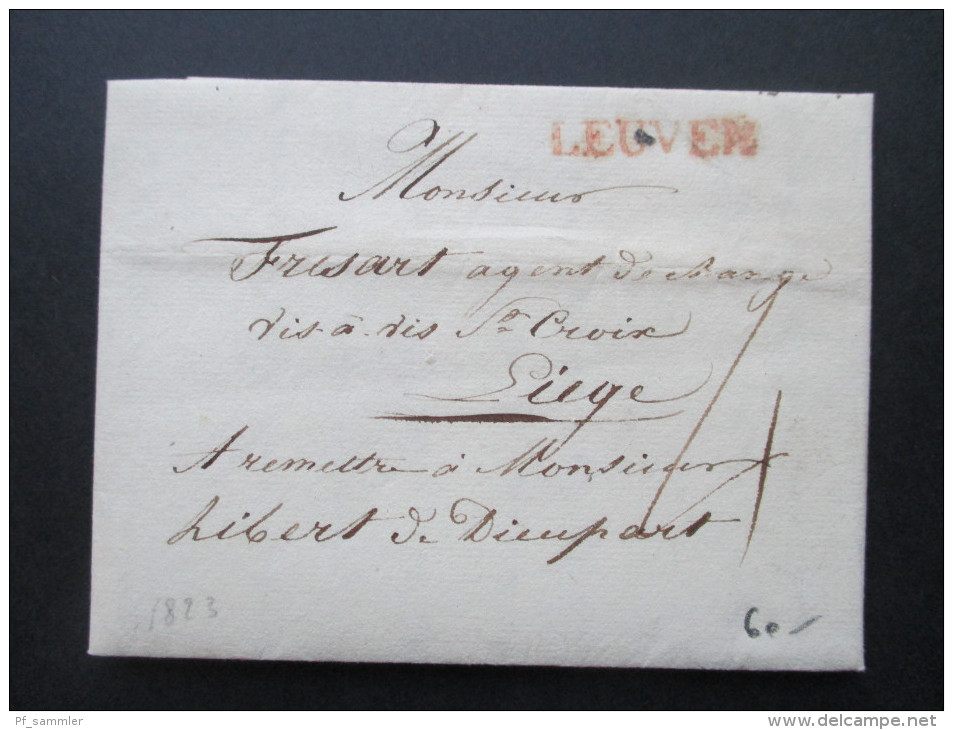 LEUVEN
Monsieur
Fresart agent de change
vis-à-vis Ste Croix
Liege
A remettre à Monsieur
Libert de Dieupart
1823
60-
Pf_sammler
www.delcampe.net